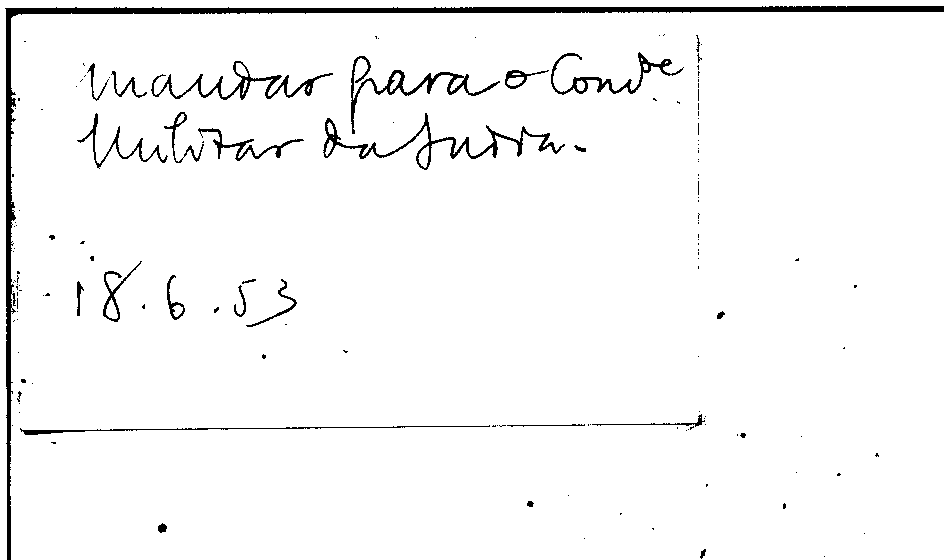 Mandar para o Comde
Militar da India.
18.6.53